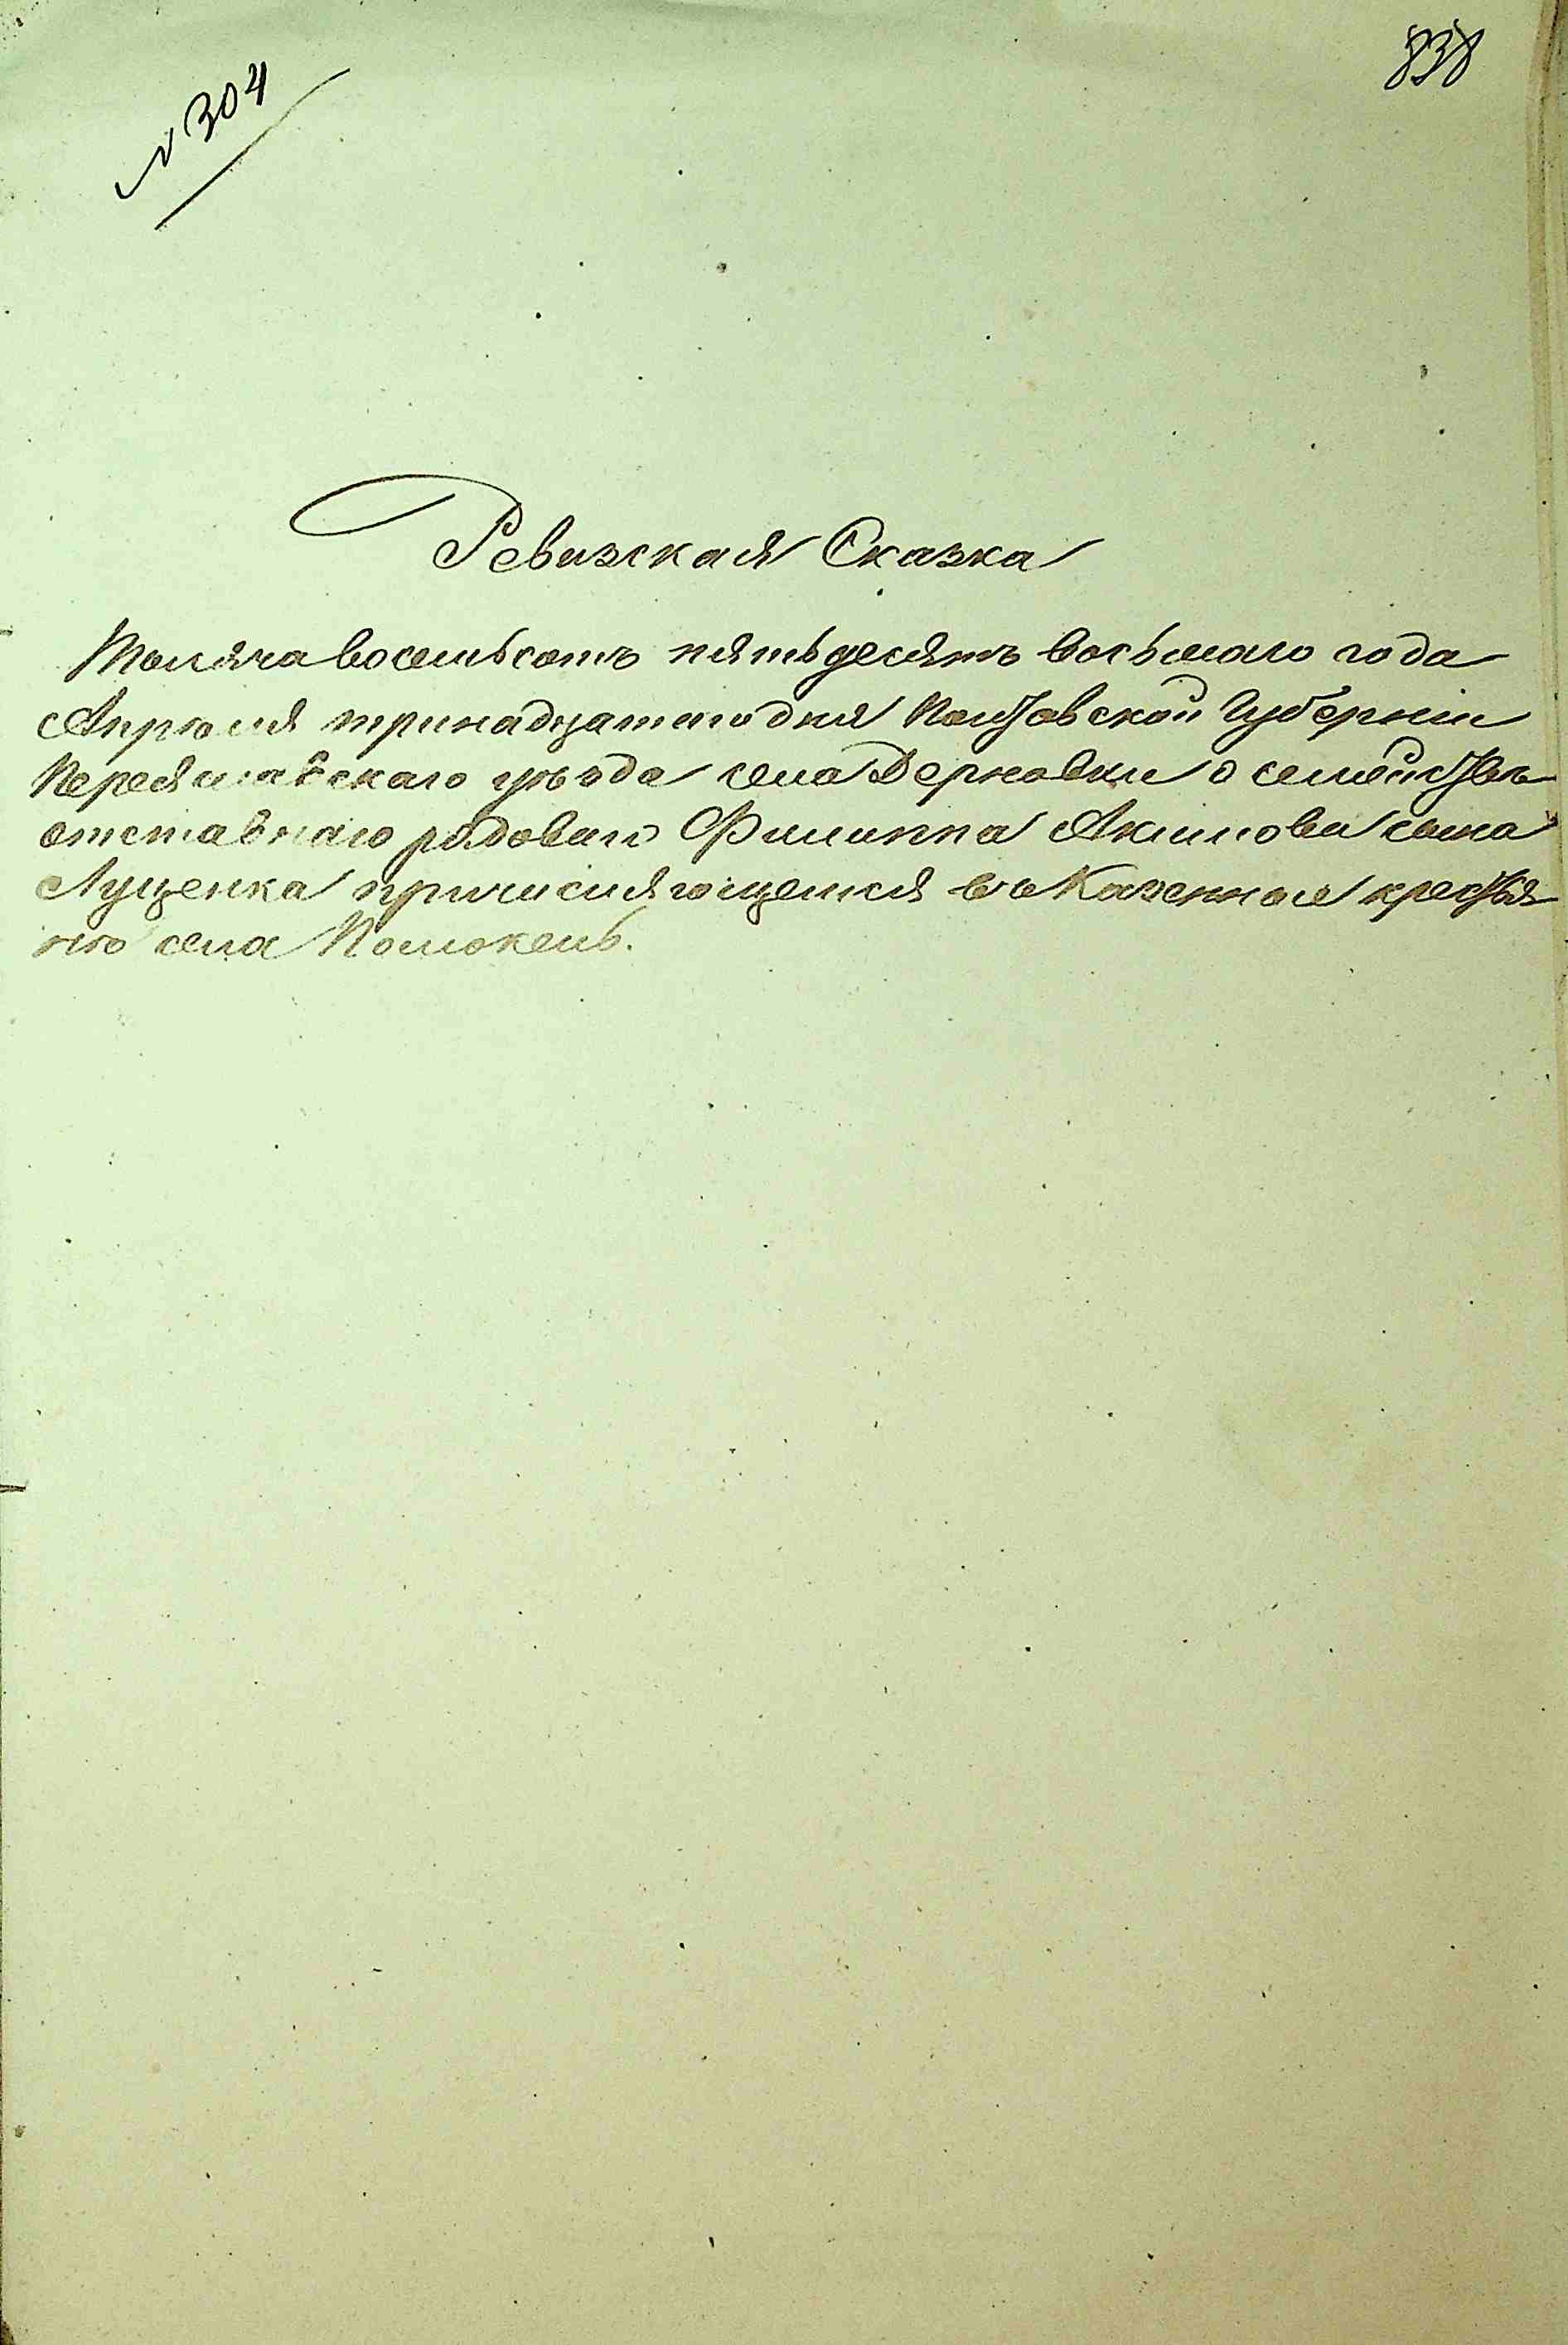 838
№ 304
Ревизская Сказка
Тысяча восемьсотъ пятьдесятъ восьмаго года
Апрѣля тринадцатого дня Полтавской Губерніи
Переяславскаго уѣзда села Дерновки о семействѣ
отставнаго рядоваго Филиппа Акимова сына
Луценка причисляющемся въ Казенные крестья
не села Помокель.